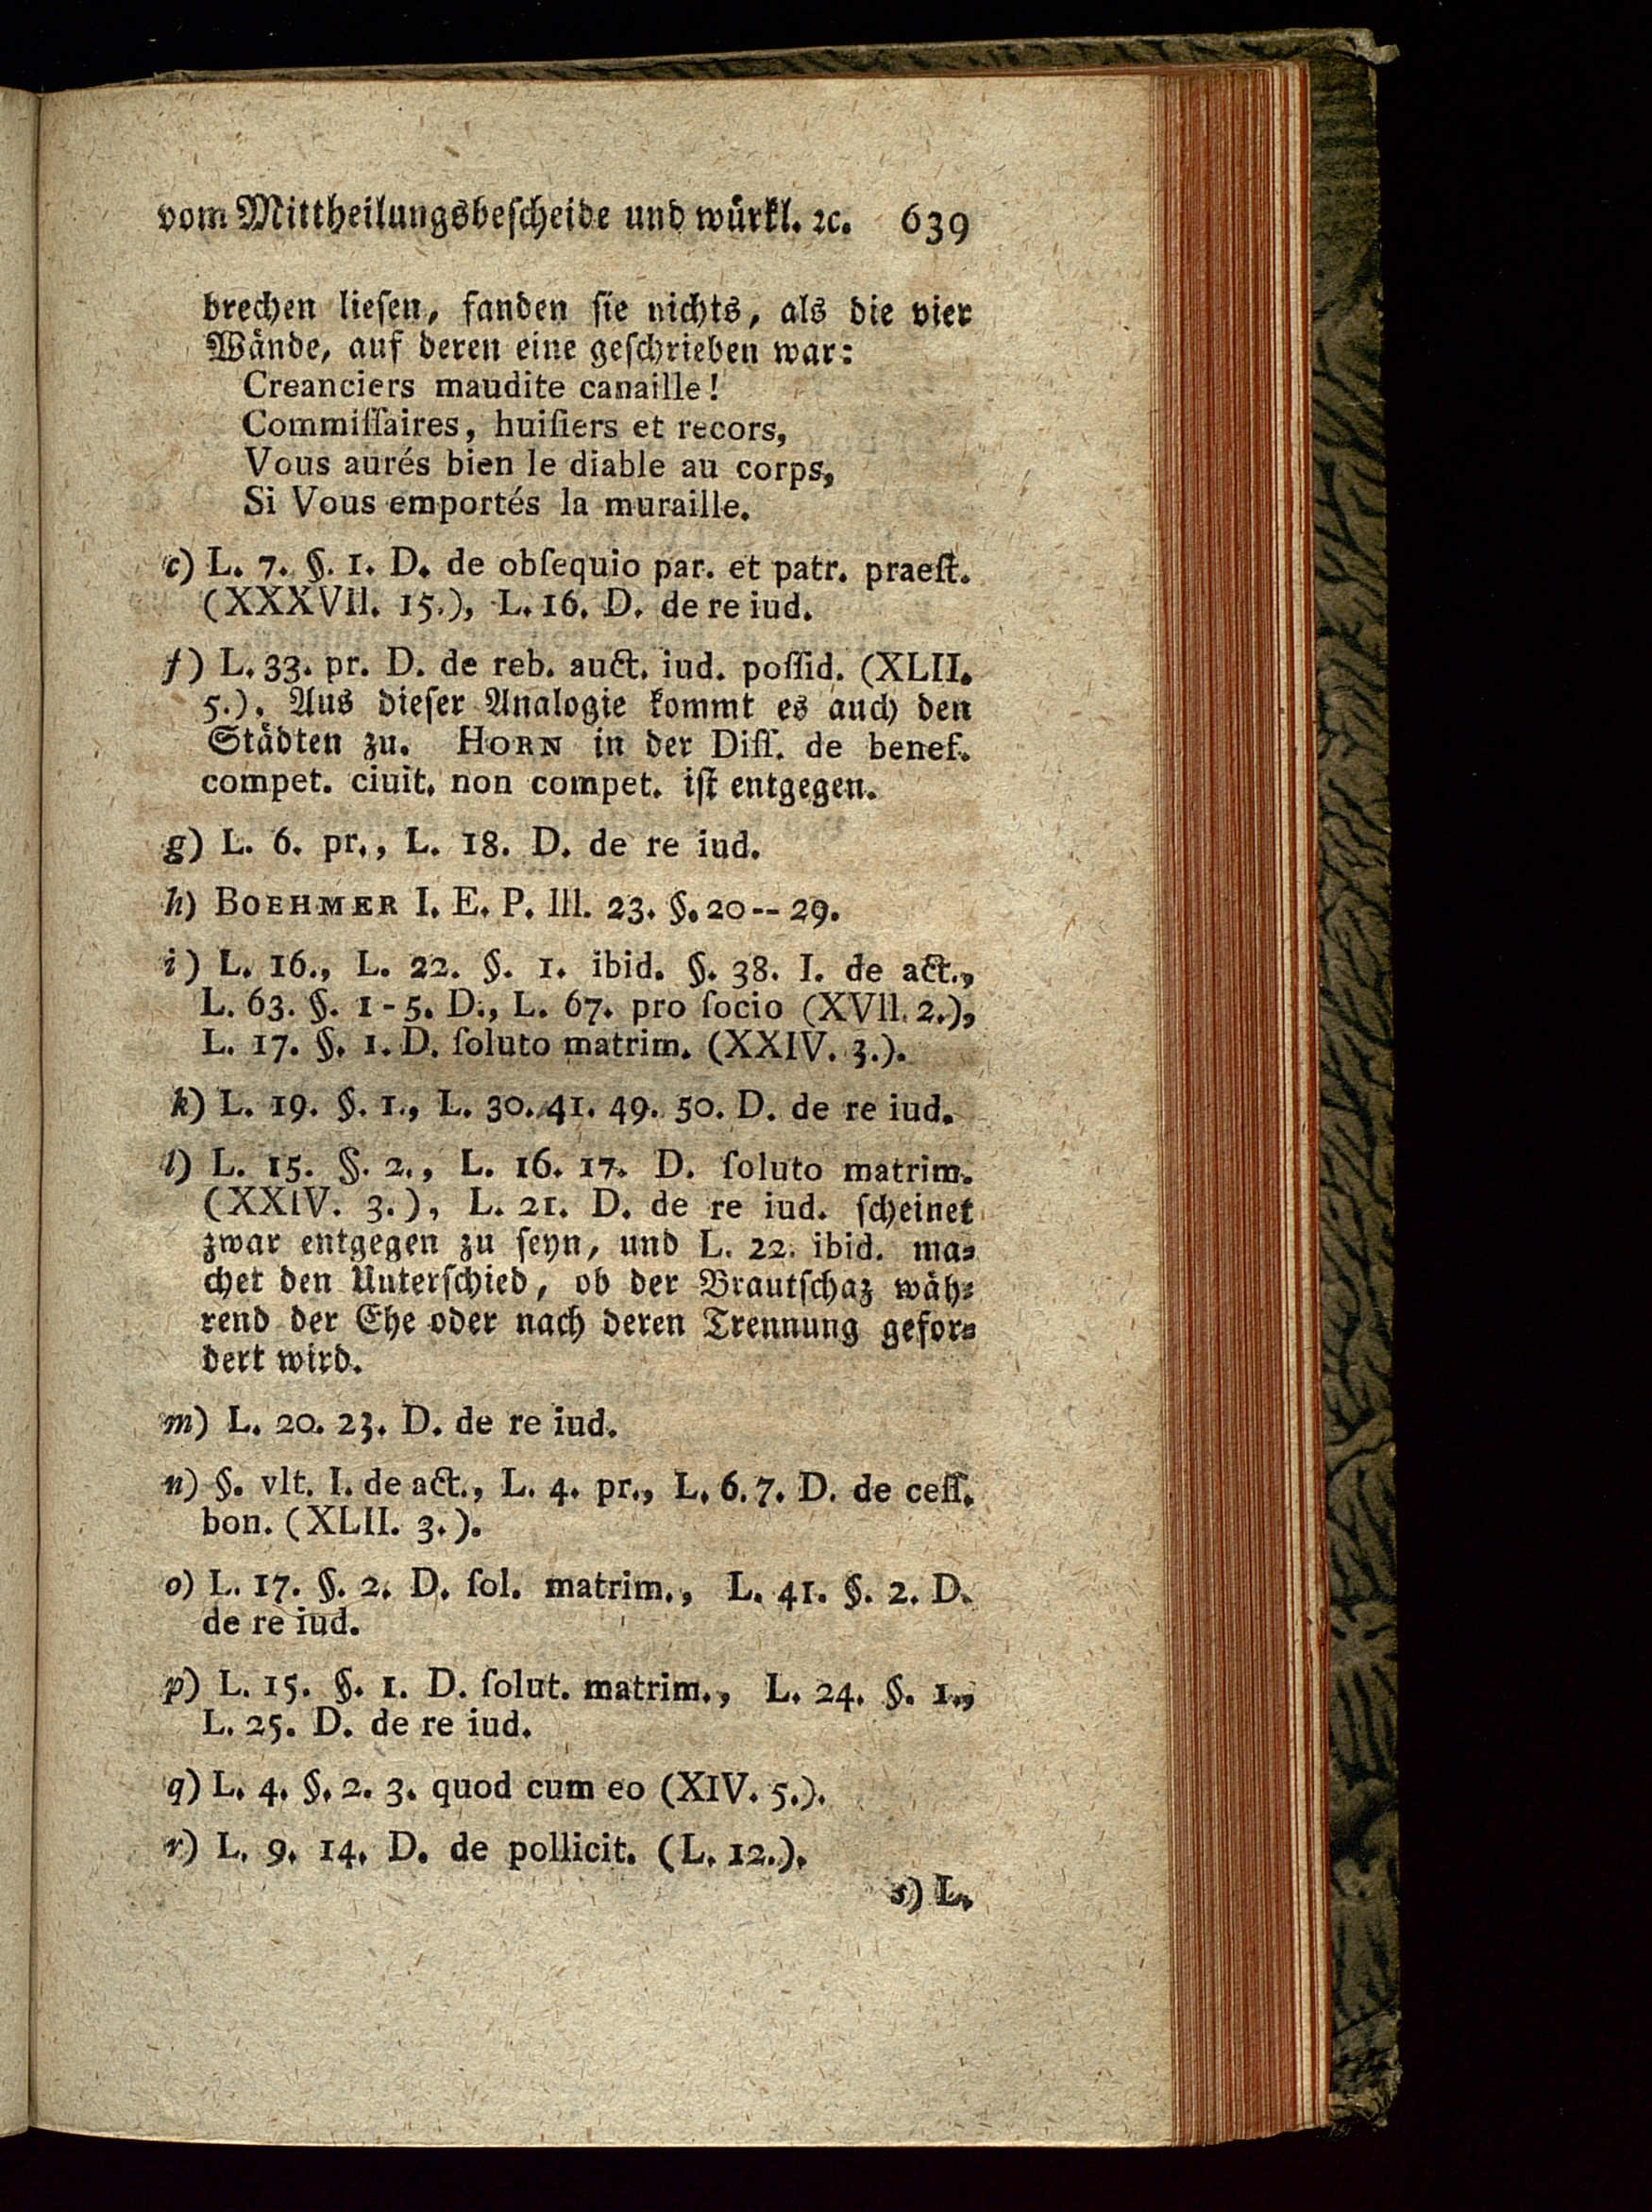 vom Mittheilungsbeſcheide und würkl. ꝛc. 639
brechen lieſen, fanden ſie nichts, als die vier
Wände, auf deren eine geſchrieben war:
Creanciers maudite canaille!
Commiſſaires, huiſiers et recors,
Vous aurés bien le diable au corps,
Si Vous emportés la muraille.
c) L. 7. §. 1. D. de obſequio par. et patr. praeſt.
(XXXVII. 15.), L. 16. D. de re iud.
f) L. 33. pr. D. de reb. auct. iud. poſſid. (XLII.
5.). Aus dieſer Analogie kommt es auch den
Städten zu. HORN in der Diſſ. de benef.
compet. ciuit. non compet. iſt entgegen.
g) L. 6. pr., L. 18. D. de re iud.
h) BOEHMER I. E. P. III. 23. §. 20-- 29.
i) L. 16., L. 22. §. 1. ibid. §. 38. I. de act.,
L. 63. §. 1-5. D., L. 67. pro ſocio (XVII. 2.),
L. 17. §. 1. D. ſoluto matrim. (XXIV. 3.).
k) L. 19. §. 1., L. 30. 41. 49. 50. D. de re iud.
l) L. 15. §. 2., L. 16. 17. D. ſoluto matrim.
(XXIV. 3.), L. 21. D. de re iud. ſcheinet
zwar entgegen zu ſeyn, und L. 22. ibid. ma⸗
chet den Unterſchied, ob der Brautſchaz wäh⸗
rend der Ehe oder nach deren Trennung gefor⸗
dert wird.
m) L. 20. 23. D. de re iud.
n) §. vlt. I. de act., L. 4. pr., L. 6. 7. D. de ceſſ.
bon. (XLII. 3.).
o) L. 17. §. 2. D. ſol. matrim., L. 41. §. 2. D.
de re iud.
p) L. 15. §. 1. D. ſolut. matrim., L. 24. §. 1.,
L. 25. D. de re iud.
q) L. 4. §. 2. 3. quod cum eo (XIV. 5.).
r) L. 9. 14. D. de pollicit. (L. 12.).
s) L.